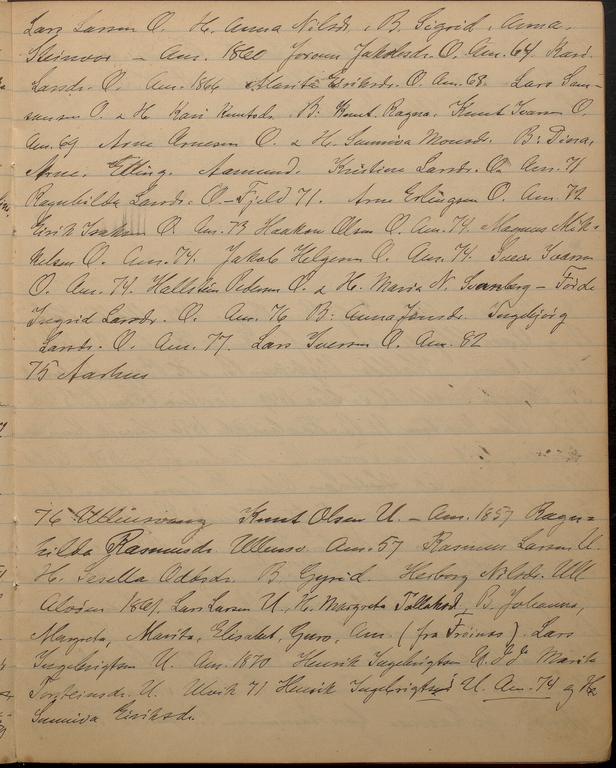 Lars Larsen O. H. Anna Nilsdr. B. Sigrid, Anna,
Steinvor – Am. 1860 Joronn Jakobsdr. O. Am. 64 Kari
Larsdr. O. Am. 1866 Marita Eiriksdr. O. Am. 68. Lars Sam-
sonsen O. & H. Kari Knutsdr. B: Knut. Ragna. Knut Ivarsen O.
Am. 69 Arne Arnesen O. & H. Sunniva Monsdr. B: Dina,
Arne, Elling. Aamund. Kristine Larsdr. O. Am. 71
Ragnhilda Larsdr. O. – Fjeld 71. Arne Erlingsen O. Am. 72
Eirik O. Am. 73 Haakon Olsen O. Am. 74. Magnus Mik-
kelsen O. Am. 74. Jakob Helgesen O. Am. 74. Sverr Ivarsen
O. Am. 74. Hallstein Pedersen O. & H. Maria N. Svanberg – Förde
Ingrid Larsdr. O. Am. 76 B: Anna Jonsdr. Ingebjörg
Larsdr. O. Am. 77. Lars Iversen O. Am. 82
75 Aarhus
76 Ullensvang Knut Olsen U. – Am. 1857 Ragn-
hilda Rasmusdr. Ullensv. Am. 57 Rasmus Larsen U.
H. Sesella Oddsdr. B. Gyrid. Herborg Nilsdr. Ull
Alvöen 1861. Lars Larsen U., H. Margreta Tallaksd, B. Johanna,
Margreta, Marita, Elisabet, Guro, Am. (fra Fröines). Lars
Ingebrigtsen U. Am. 1870 Henrik Ingebrigtsen U. Marita
Torsteinsdr. U. Ulvik 71 Henrik Ingebrigtsen U. Am. 74 og H
Sunniva Eiriksdr.